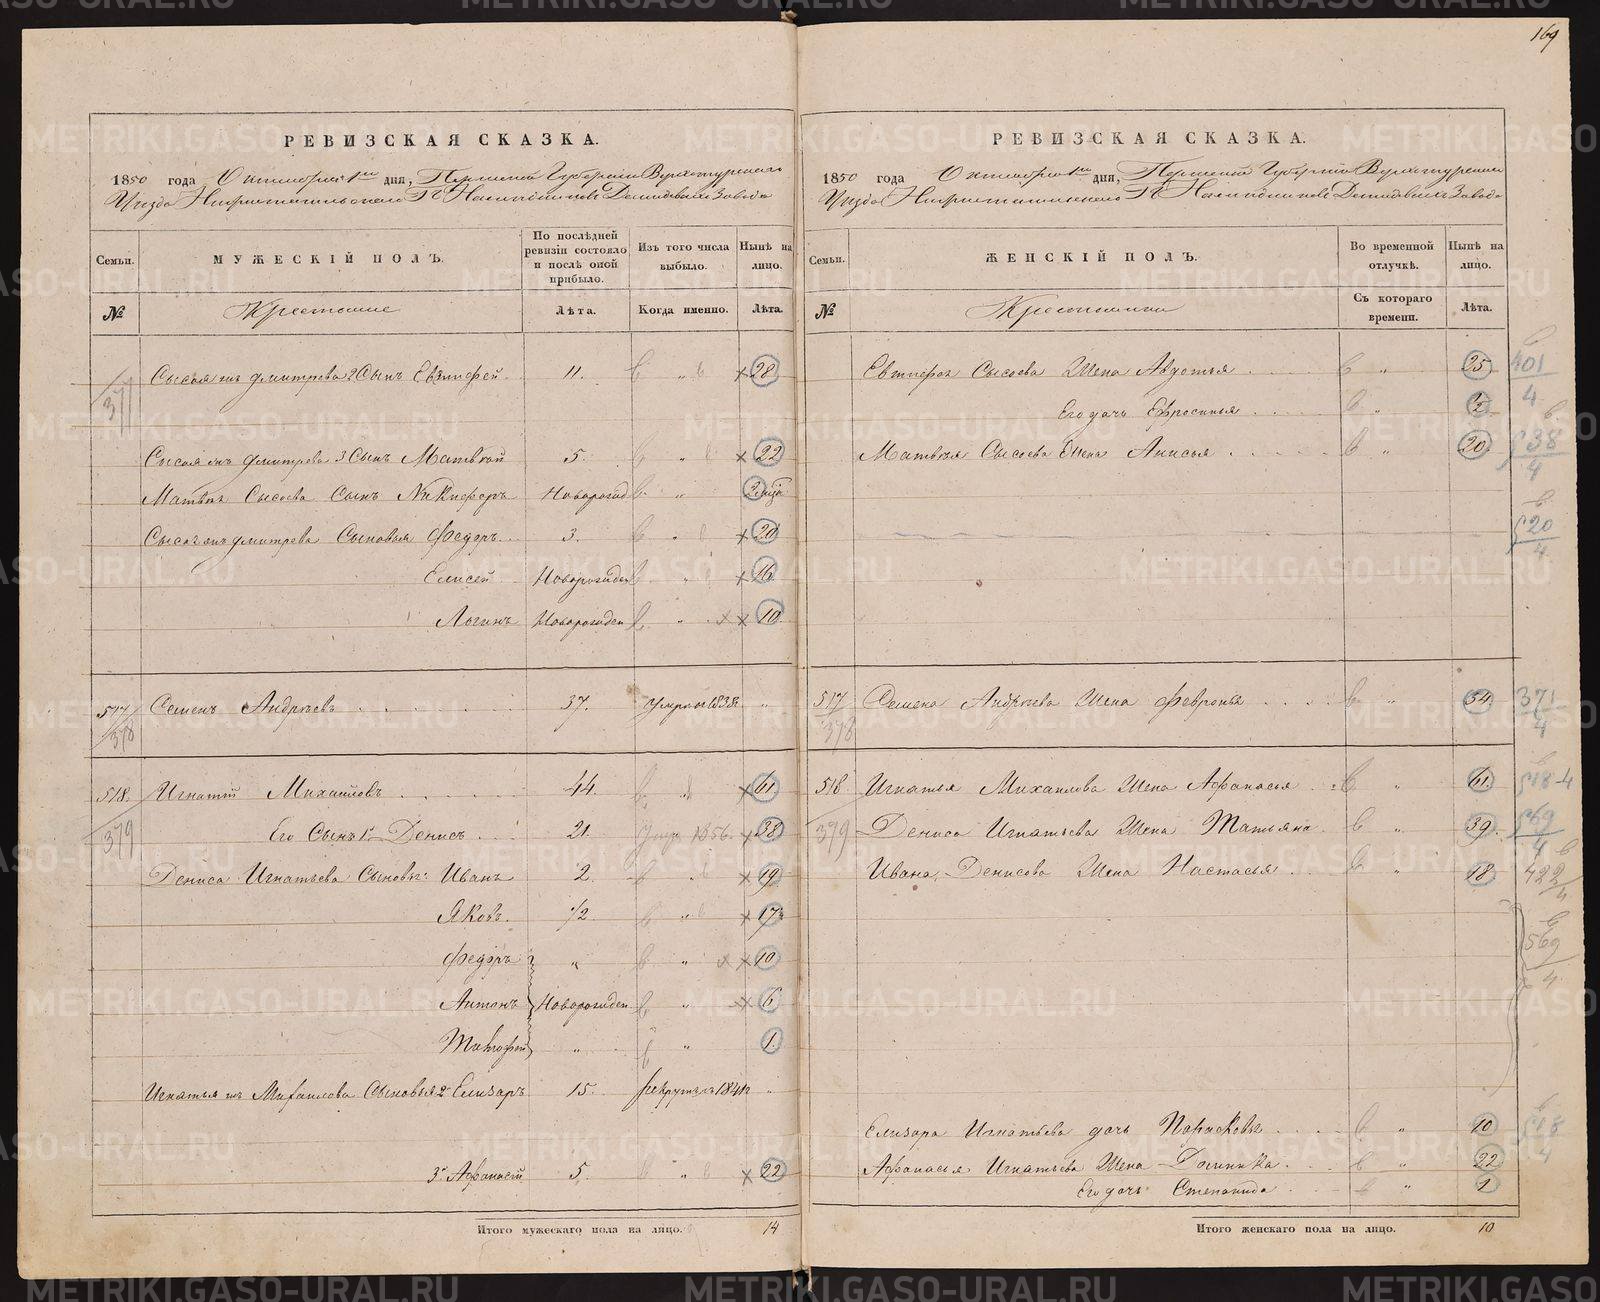 169
РЕВИЗСКАЯ СКАЗКА.
1850 года Октября дня, Пермской Губернии Верхотурскаго
Уезда Нижнетагильскаго Демидовыхъ Завода
Семьи.
МУЖЕСКІЙ ПОЛЪ.
По послѣдней ревизіи состояло и послѣ оной прибыло.
Изъ того числа выбыло.
Нынѣ на лицо.
№
Крестьяне
Лѣта.
Когда именно.
Лѣта.
377
Сысоя Дмитрева 2 Сынъ Евтифей 11. " 28
Сысоя Дмитрева 3 Сынъ Матвѣй 5. " 22
Матвея Сысоева Сынъ Никифоръ Новорожд "
Сысоя Дмитрева Сыновья Федоръ 3. " 20
Елисей Новорожден " 16
Логинъ Новорожден " 10
517 Семенъ Андреевъ 37. Умре в 1838 "
378
518. Игнатій Михайловъ 44. 61
379
Его Сынъ 1й Денисъ 21. Умре 1856. 38
Дениса Игнатьева Сыновья: Иванъ 2. " 19
Яковъ. 1/2 " 17
Федоръ " " 10
Антонъ Новорожден " 6
Тимофей " " 1.
Игнатья Михаилова Сыновья 2 Елизаръ 15. рекрутъ 1841 "
3й Афанасій 5. " 22
Итого мужескаго пола на лицо. 14
РЕВИЗСКАЯ СКАЗКА.
1850 года Октября дня, Пермской Губерніи Верхотурскаго
Уезда Нижнетагильскаго Демидовыхъ Завода
Семьи.
ЖЕНСКІЙ ПОЛЪ.
Во временной отлучкѣ.
Нынѣ на лицо.
№
Крестьянки
Съ котораго времени.
Лѣта.
Сысоева Жена Авдотья " 25 401/4
Его дочь Ефросинья " 1/2
Матвея Сысоева Жена Анисья " 20 538/4
520/4
517 Семена Андреева Жена Февронья " 54. 371/4
378
518 Игнатья Михаилова Жена Афанасья " 61. 518-4
379 Дениса Игнатьева Жена Татьяна " 39. 569/4
Ивана Денисова Жена Настасья " 18 422/4
569/4
Елизара Игнатьева дочь Парасковья " 10 518/4
Афанасья Игнатьева Жена Домника " 22
Его дочь Степанида " 1
Итого женскаго пола на лицо. 10
METRIKI.GASO-URAL.RU